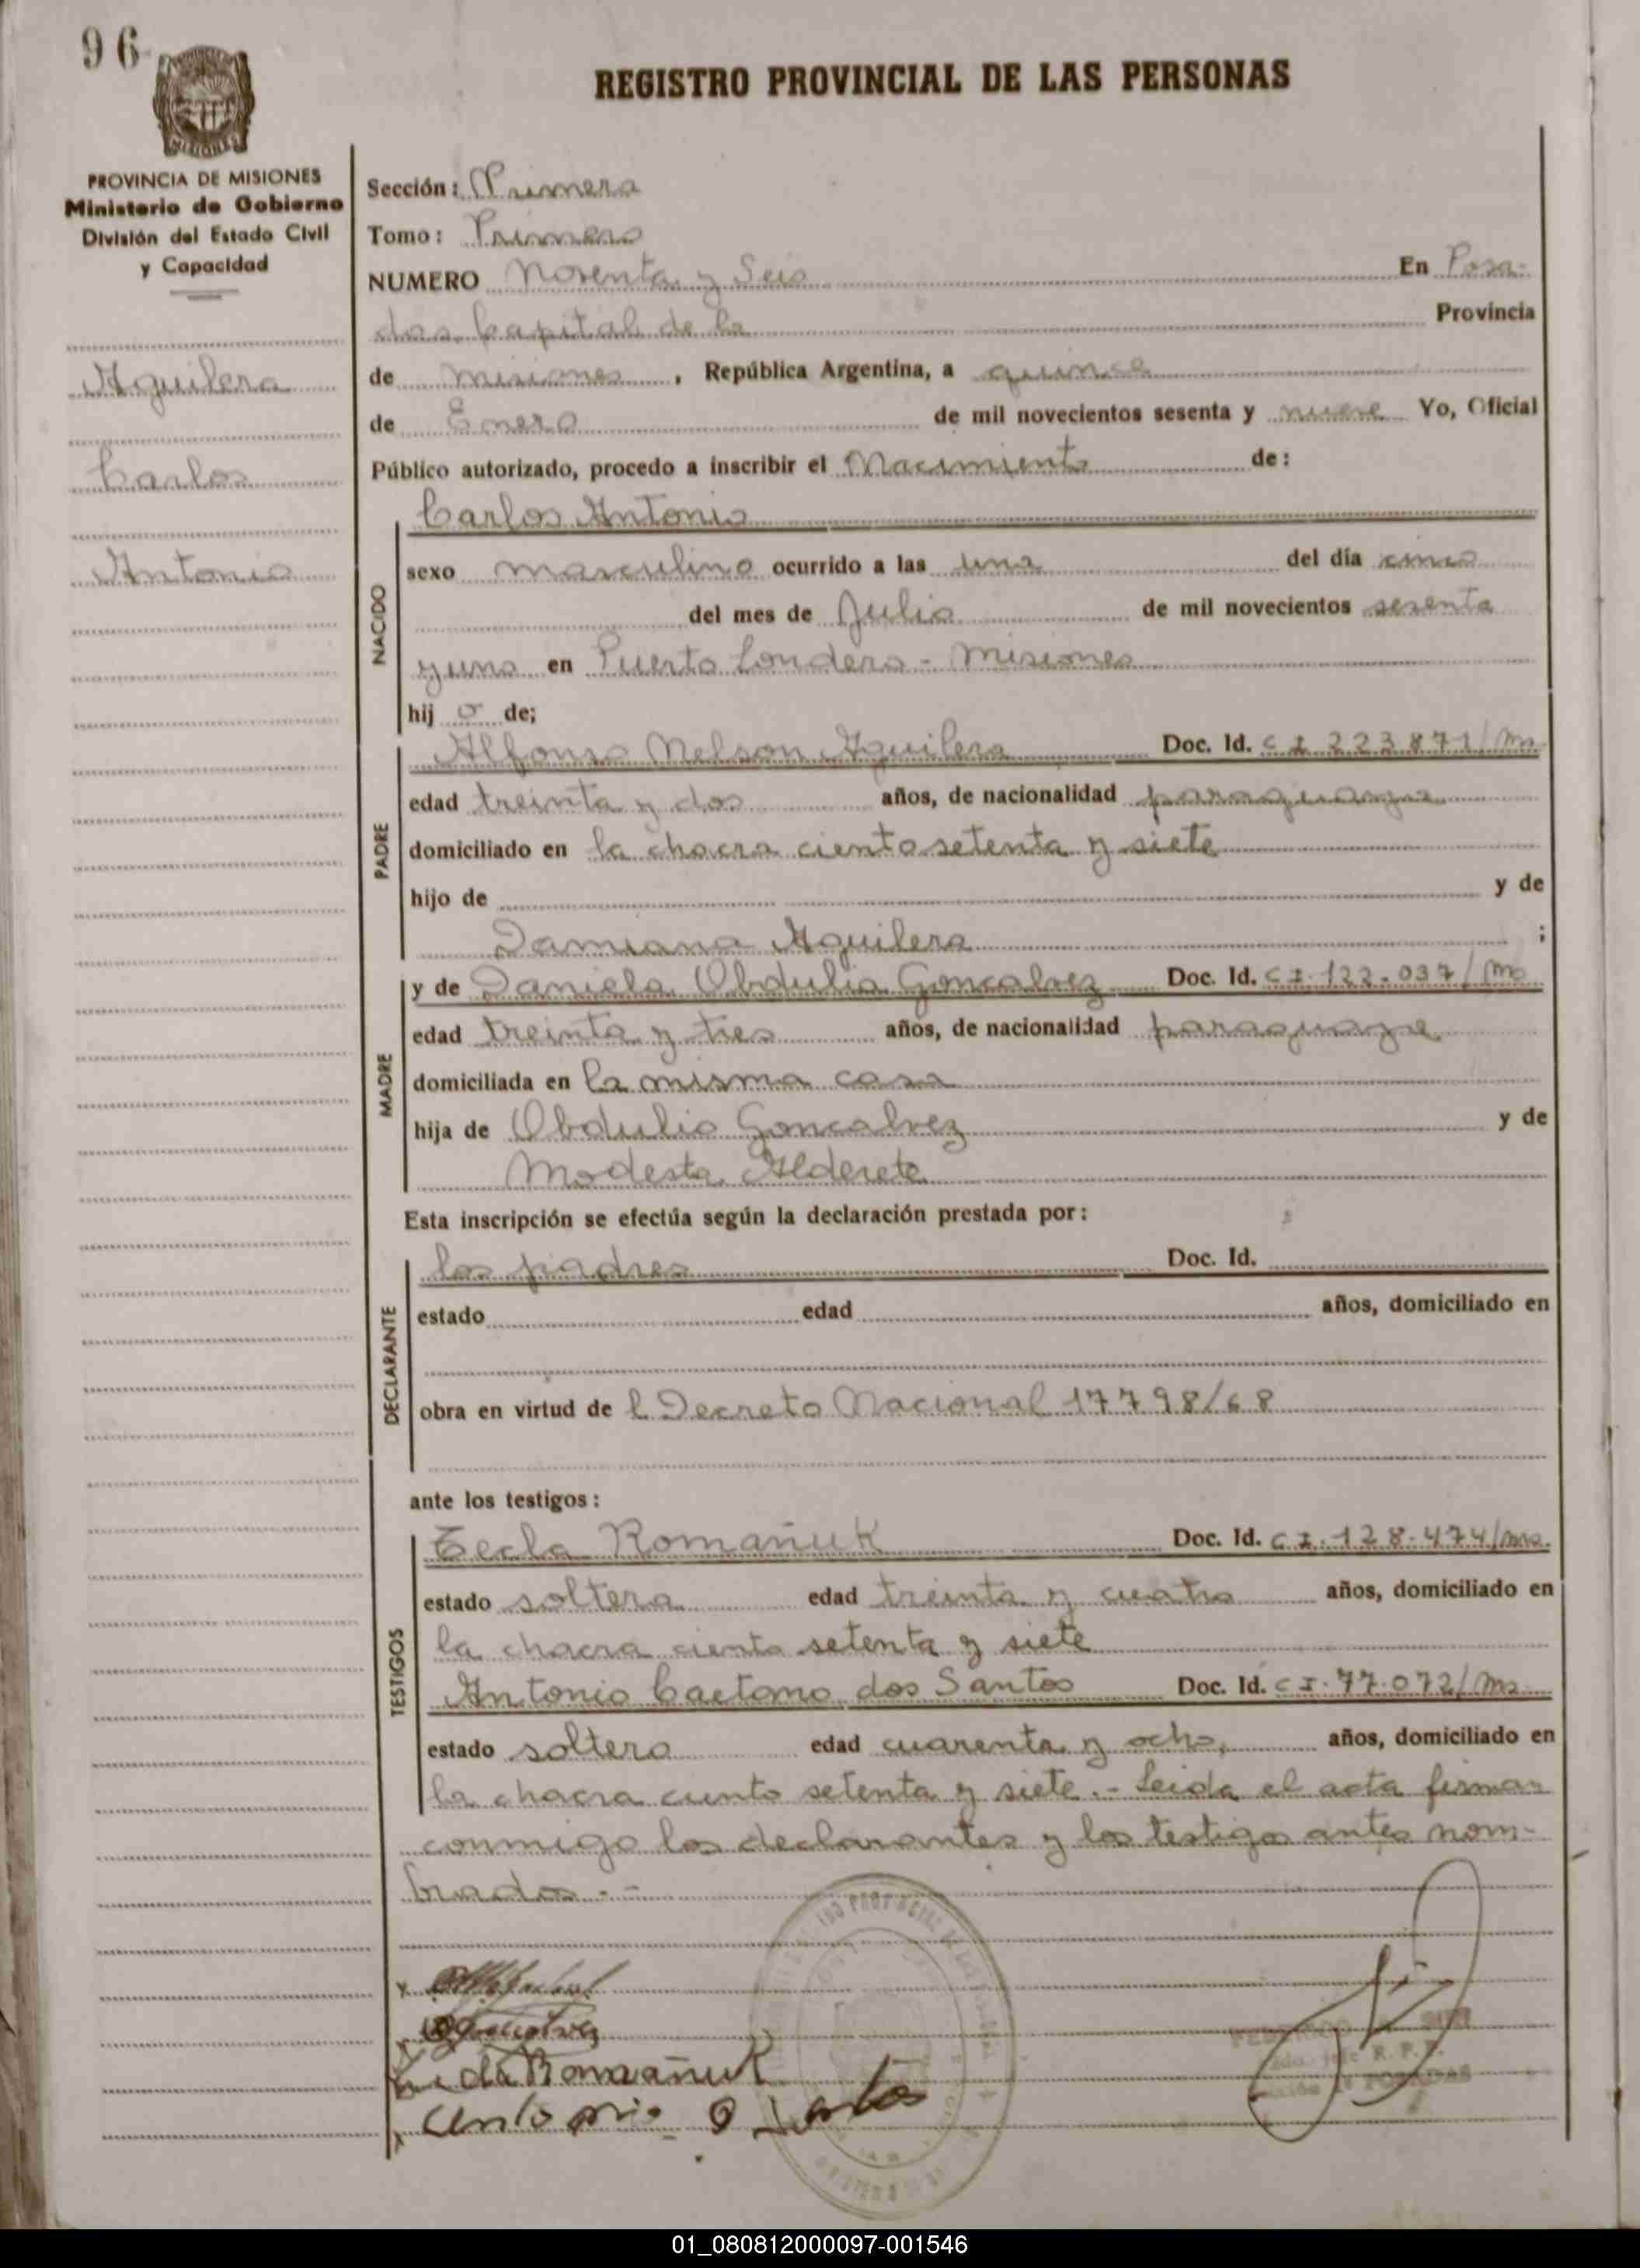 96
REGISTRO PROVINCIAL DE LAS PERSONAS
MISIONES
PROVINCIA DE MISIONES
Ministerio de Gobierno
División del Estado Civil
y Capacidad
Aguilera
Carlos
Antonio
Sección: Primera
Tomo: Primero
NUMERO Noventa y Seis En Posa-
das Capital de la Provincia
de Misiones, República Argentina, a quince
de Enero de mil novecientos sesenta y nueve Yo, Oficial
Público autorizado, procedo a inscribir el Nacimiento de:
NACIDO
Carlos Antonio
sexo masculino ocurrido a las una del día cinco
del mes de Julio de mil novecientos sesenta
y uno en Puerto Londero - Misiones
hij o de;
PADRE
Alfonso Nelson Aguilera Doc. Id. C I 223871/Ms
edad treinta y dos años, de nacionalidad paraguaya
domiciliado en la chacra ciento setenta y siete
hijo de y de
Damiana Aguilera ;
MADRE
y de Daniela Obdulia Goncalvez Doc. Id. C I. 122.037/Ms
edad treinta y tres años, de nacionalidad paraguaya
domiciliada en la misma casa
hija de Obdulio Goncalvez y de
Modesta Alderete
Esta inscripción se efectúa según la declaración prestada por:
DECLARANTE
los padres Doc. Id.
estado edad años, domiciliado en
obra en virtud de l Decreto Nacional 17798/68
ante los testigos:
TESTIGOS
Tecla Romañuk Doc. Id. C I. 128.474/Ms.
estado soltera edad treinta y cuatro años, domiciliado en
la chacra ciento setenta y siete
Antonio Caetano dos Santos Doc. Id. C I. 77.072/Ms.
estado soltero edad cuarenta y ocho, años, domiciliado en
la chacra ciento setenta y siete.- Leida el acta firman
conmigo los declarantes y los testigos antes nom-
brados.-
Romañuk
Antonio D Santos
R. P. P.
POSADAS
01_080812000097-001546